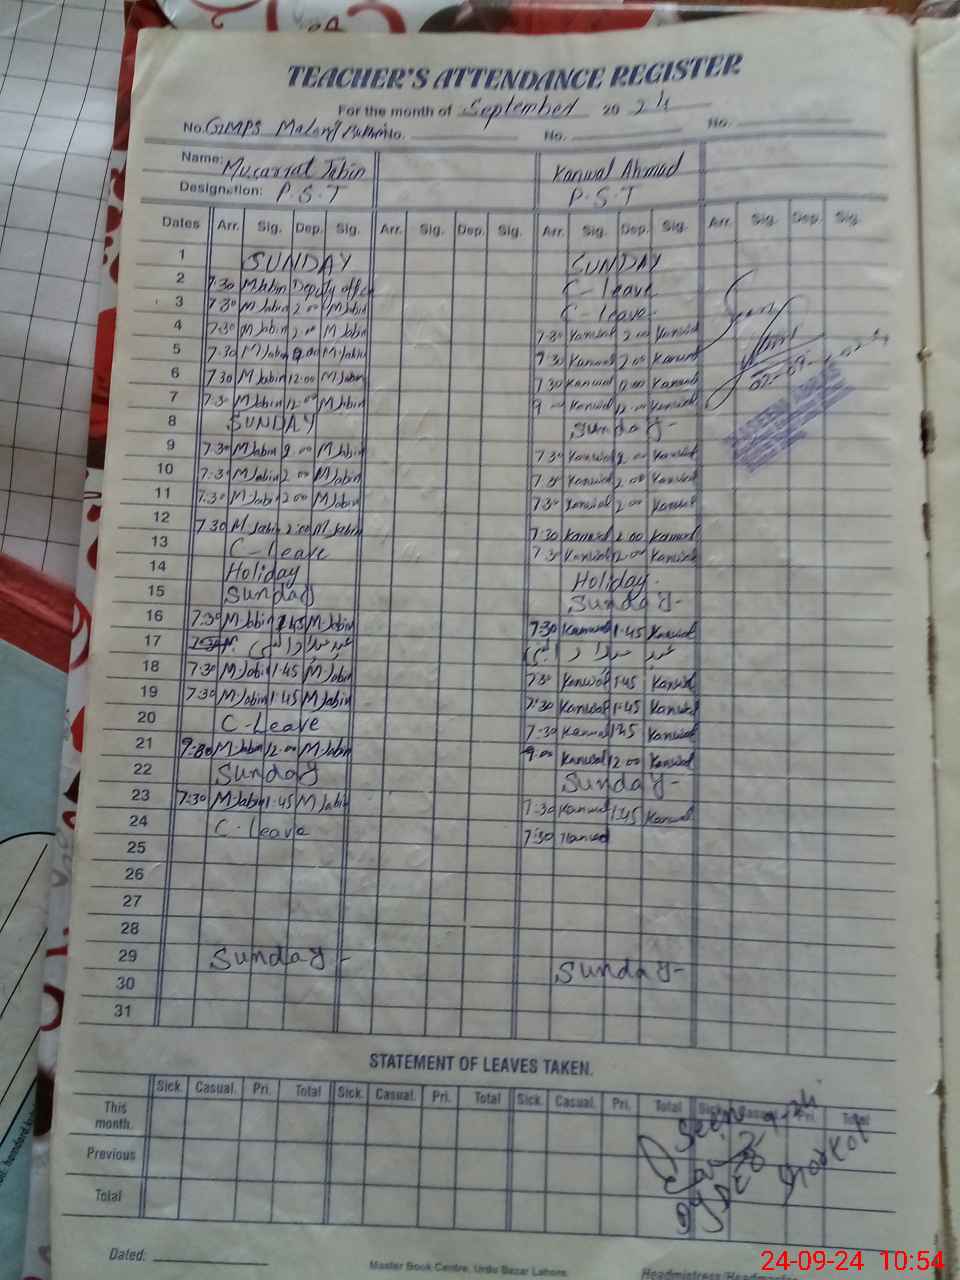 TEACHER'S ATTENDANCE REGISTER
For the month of September 2024
No. GMPS No. No. No.
Name: Musarrat Jabin Kanwal Ahmad
Designation: P.S.T P.S.T
Dates Arr. Sig. Dep. Sig. Arr. Sig. Dep. Sig. Arr. Sig. Dep. Sig. Arr. Sig. Dep. Sig.
1 SUNDAY SUNDAY
2 7:30 M Jabin Deputy office C-leave
3 7:30 M Jabin 2:00 M Jabin C-leave
4 7:30 M Jabin 2:00 M Jabin 7:30 Kanwal 2:00 Kanwal
5 7:30 M Jabin 2:00 M Jabin 7:30 Kanwal 2:00 Kanwal
6 7:30 M Jabin 12:00 M Jabin 7:30 Kanwal 12:00 Kanwal
7 7:30 M Jabin 12:00 M Jabin 9 Kanwal 12:00 Kanwal
8 SUNDAY Sunday-
9 7:30 M Jabin 2:00 M Jabin 7:30 Kanwal 2:00 Kanwal
10 7:30 M Jabin 2:00 M Jabin 7:30 Kanwal 2:00 Kanwal
11 7:30 M Jabin 2:00 M Jabin 7:30 Kanwal 2:00 Kanwal
12 7:30 M Jabin 2:00 M Jabin 7:30 Kanwal 2:00 Kanwal
13 C-Leave 7:30 Kanwal 12:00 Kanwal
14 Holiday Holiday.
15 Sunday Sunday-
16 7:30 M Jabin 1:45 M Jabin 7:30 Kanwal 1:45 Kanwal
17 عید میلاد النبی عید میلاد النبی
18 7:30 M Jabin 1:45 M Jabin 7:30 Kanwal 1:45 Kanwal
19 7:30 M Jabin 1:45 M Jabin 7:30 Kanwal 1:45 Kanwal
20 C-Leave 7:30 Kanwal 1:45 Kanwal
21 9:00 M Jabin 12:00 M Jabin 9:00 Kanwal 12:00 Kanwal
22 Sunday Sunday-
23 7:30 M Jabin 1:45 M Jabin 7:30 Kanwal 1:45 Kanwal
24 C-Leave 7:30 Kanwal
25
26
27
28
29 Sunday- Sunday-
30
31
STATEMENT OF LEAVES TAKEN.
Sick. Casual. Pri. Total Sick. Casual. Pri. Total Sick. Casual. Pri. Total Sick. Casual. Pri. Total
This month.
Previous
Total
Seen
Shorkot
Dated:
Master Book Centre, Urdu Bazar Lahore.
24-09-24 10:54